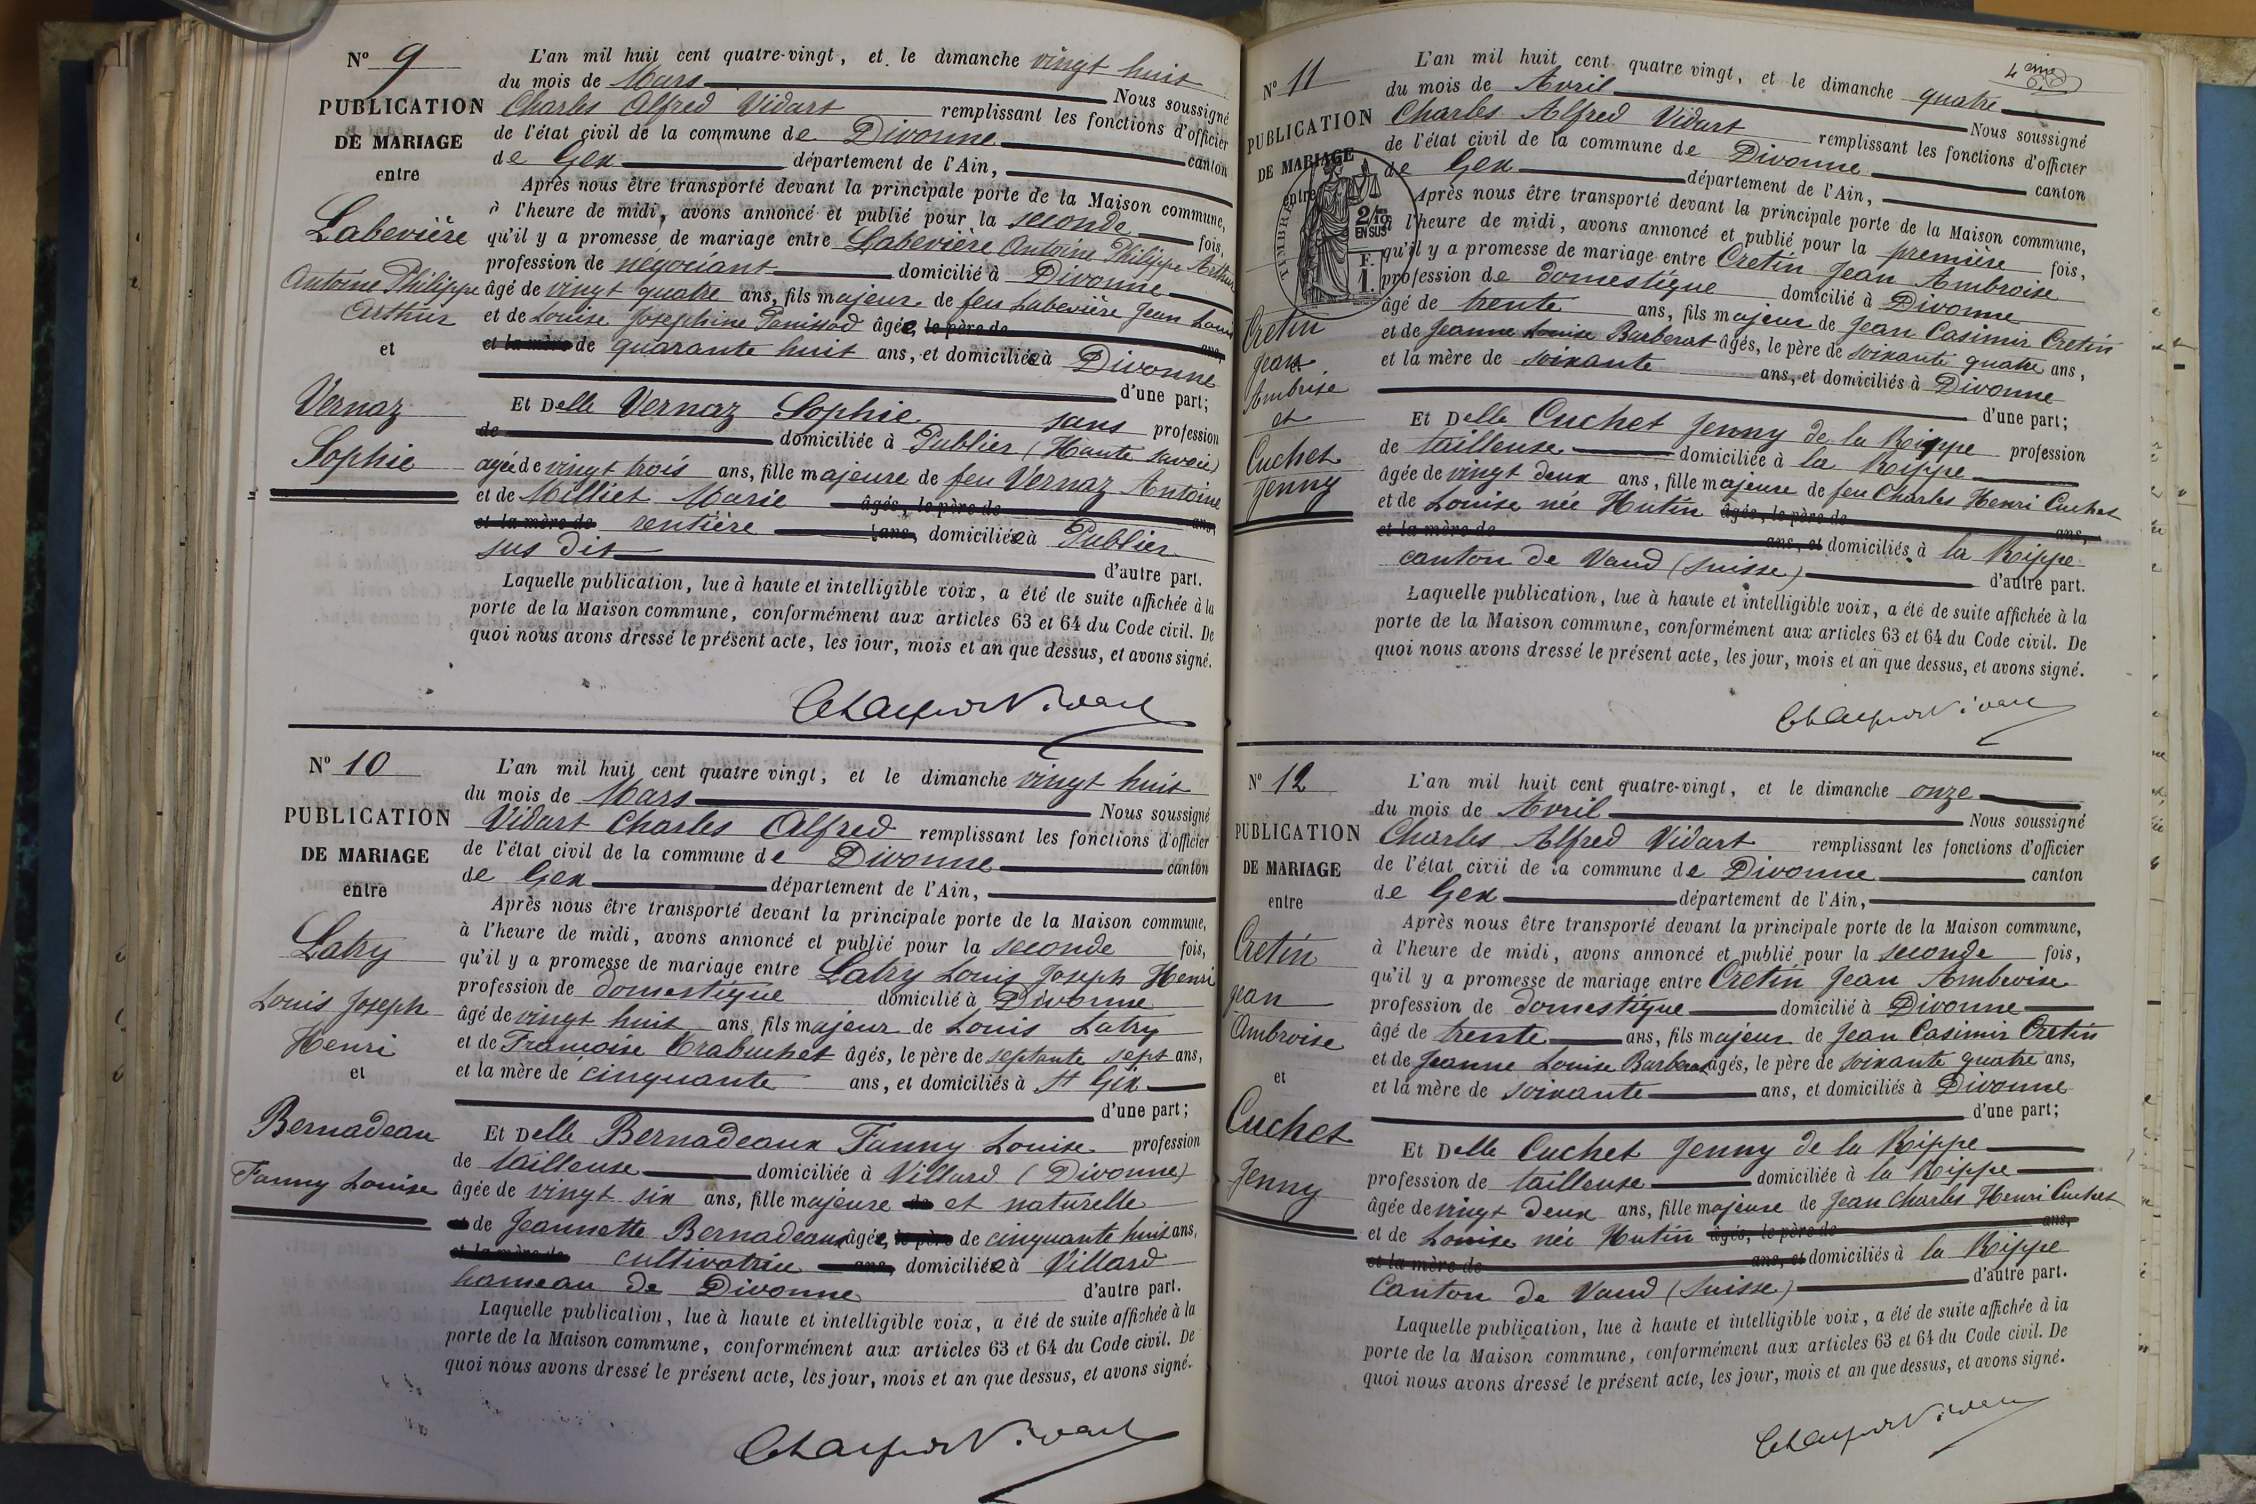 N° 9
PUBLICATION
DE MARIAGE
entre
Labevière
Antoine Philippe
Arthur
et
Vernaz
Sophie
L'an mil huit cent quatre-vingt, et le dimanche vingt huit
du mois de Mars Nous soussigné
Charles Alfred Vidart remplissant les fonctions d'officier
de l'état civil de la commune de Divonne canton
de Gex département de l'Ain,
Après nous être transporté devant la principale porte de la Maison commune,
à l'heure de midi, avons annoncé et publié pour la seconde fois,
qu'il y a promesse de mariage entre Labevière Antoine Philippe Arthur
profession de négociant domicilié à Divonne
âgé de vingt quatre ans, fils majeur de feu Labevière Jean Louis
et de Louise Josephine Panissod âgée, le père de ans,
et la mère de quarante huit ans, et domiciliée à Divonne
d'une part;
ET Delle Vernaz Sophie sans profession
de domiciliée à Publier (Haute Savoie)
agée de vingt trois ans, fille majeure de feu Vernaz Antoine
et de Milliet Marie âgés, le père de ans,
et la mère de rentière ans, domiciliée à Publier
sus dit d'autre part.
Laquelle publication, lue à haute et intelligible voix, a été de suite affichée à la
porte de la Maison commune, conformément aux articles 63 et 64 du Code civil. De
quoi nous avons dressé le présent acte, les jour, mois et an que dessus, et avons signé.
Ch Alfred Vidart
N° 10
PUBLICATION
DE MARIAGE
entre
Latry
Louis Joseph
Henri
et
Bernadeau
Fanny Louise
L'an mil huit cent quatre vingt, et le dimanche vingt huit
du mois de Mars Nous soussigné
Vidart Charles Alfred remplissant les fonctions d'officier
de l'état civil de la commune de Divonne canton
de Gex département de l'Ain,
Après nous être transporté devant la principale porte de la Maison commune,
à l'heure de midi, avons annoncé et publié pour la seconde fois,
qu'il y a promesse de mariage entre Latry Louis Joseph Henri
profession de domestique domicilié à Divonne
âgé de vingt huit ans, fils majeur de Louis Latry
et de Françoise Trabuchet âgés, le père de septante sept ans,
et la mère de cinquante ans, et domiciliés à St Gix
d'une part;
ET Delle Bernadeaux Fanny Louise profession
de tailleuse domiciliée à Villard (Divonne)
âgée de vingt six ans, fille majeure de et naturelle
et de Jeannette Bernadeaux âgée, le père de cinquante huit ans,
et la mère de cultivatrice ans, domiciliée à Villard
hameau de Divonne d'autre part.
Laquelle publication, lue à haute et intelligible voix, a été de suite affichée à la
porte de la Maison commune, conformément aux articles 63 et 64 du Code civil. De
quoi nous avons dressé le présent acte, les jour, mois et an que dessus, et avons signé.
Ch Alfred Vidart
4ème
N° 11
PUBLICATION
DE MARIAGE
entre
TIMBRE
2/10es
EN SUS
F.
1.
Cretin
Jean
Ambroise
et
Cuchet
Jenny
L'an mil huit cent quatre vingt, et le dimanche quatre
du mois de Avril Nous soussigné
Charles Alfred Vidart remplissant les fonctions d'officier
de l'état civil de la commune de Divonne canton
de Gex département de l'Ain,
Après nous être transporté devant la principale porte de la Maison commune,
l'heure de midi, avons annoncé et publié pour la première fois,
qu'il y a promesse de mariage entre Cretin Jean Ambroise
profession de domestique domicilié à Divonne
âgé de trente ans, fils majeur de Jean Casimir Cretin
et de Jeanne Louise Barberat âgés, le père de soixante quatre ans,
et la mère de soixante ans, et domiciliés à Divonne
d'une part;
ET Delle Cuchet Jenny de la Rippe profession
de tailleuse domiciliée à la Rippe
âgée de vingt deux ans, fille majeure de feu Charles Henri Cuchet
et de Louise née Hutin âgés, le père de ans,
et la mère de ans, et domiciliés à la Rippe
canton de Vaud (Suisse) d'autre part.
Laquelle publication, lue à haute et intelligible voix, a été de suite affichée à la
porte de la Maison commune, conformément aux articles 63 et 64 du Code civil. De
quoi nous avons dressé le présent acte, les jour, mois et an que dessus, et avons signé.
Ch Alfred Vidart
N° 12
PUBLICATION
DE MARIAGE
entre
Cretin
Jean
Ambroise
et
Cuchet
Jenny
L'an mil huit cent quatre-vingt, et le dimanche onze
du mois de Avril Nous soussigné
Charles Alfred Vidart remplissant les fonctions d'officier
de l'état civil de la commune de Divonne canton
de Gex département de l'Ain,
Après nous être transporté devant la principale porte de la Maison commune,
à l'heure de midi, avons annoncé et publié pour la seconde fois,
qu'il y a promesse de mariage entre Cretin Jean Ambroise
profession de domestique domicilié à Divonne
âgé de trente ans, fils majeur de Jean Casimir Cretin
et de Jeanne Louise Barberat âgés, le père de soixante quatre ans,
et la mère de soixante ans, et domiciliés à Divonne
d'une part;
ET Delle Cuchet Jenny de la Rippe
profession de tailleuse domiciliée à la Rippe
âgée de vingt deux ans, fille majeure de Jean Charles Henri Cuchet
et de Louise née Hutin âgés, le père de ans,
et la mère de ans, et domiciliés à la Rippe
Canton de Vaud (Suisse) d'autre part.
Laquelle publication, lue à haute et intelligible voix, a été de suite affichée à la
porte de la Maison commune, conformément aux articles 63 et 64 du Code civil. De
quoi nous avons dressé le présent acte, les jour, mois et an que dessus, et avons signé.
Ch Alfred Vidart